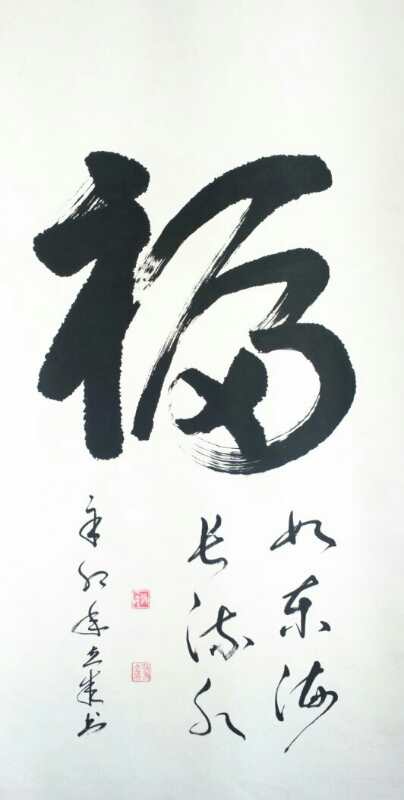 福
如东海
长流水
辛卯年立春书